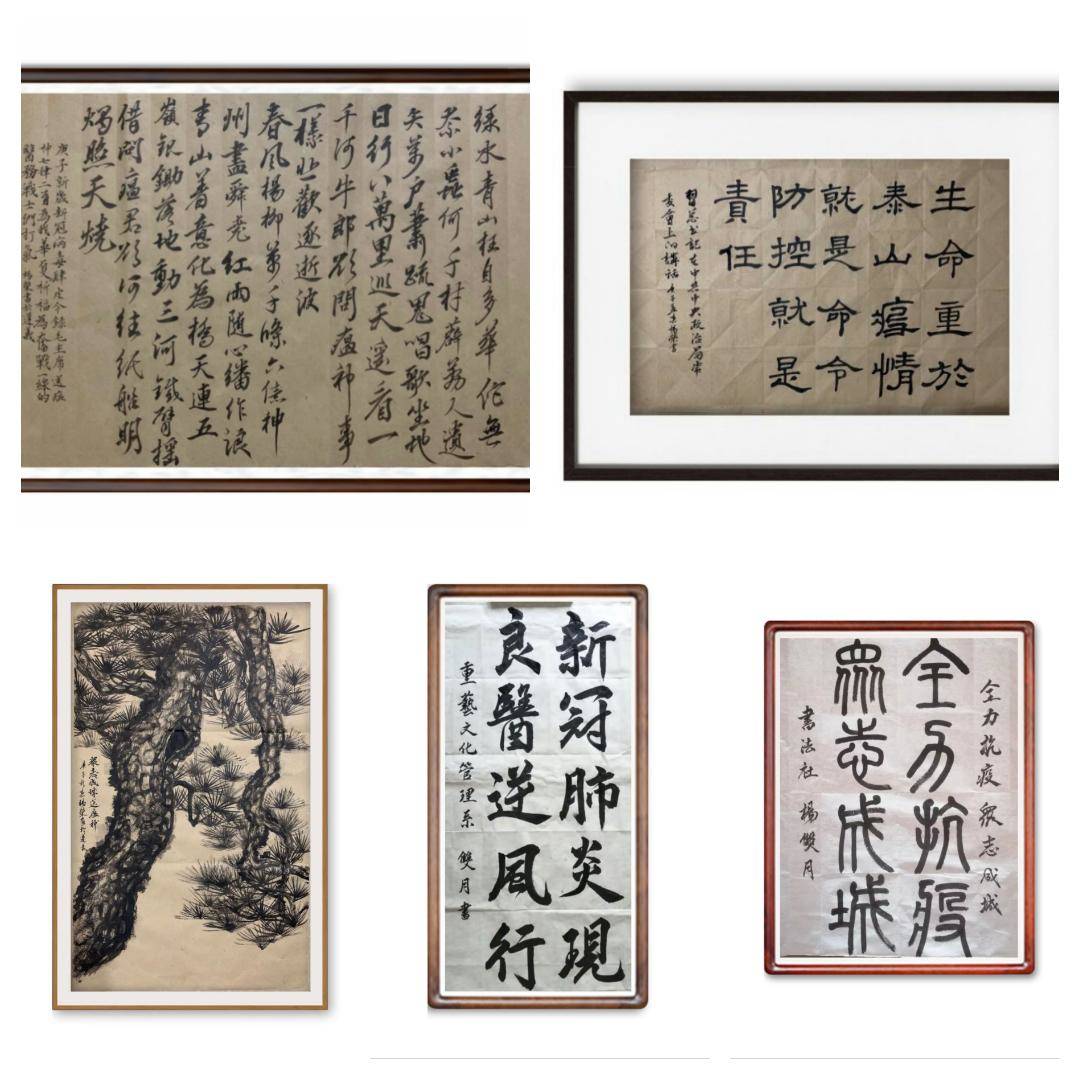 綠水青山枉自多華佗無
奈小蟲何千村薜荔人遺
矢萬戶蕭疏鬼唱歌坐地
日行八萬里巡天遙看一
千河牛郎欲問瘟神事
一樣悲歡逐逝波
春風楊柳萬千條六億神
州盡舜堯紅雨隨心繙作浪
青山著意化為橋天連五
嶺銀鋤落地動三河鐵臂搖
借問瘟君欲何往紙船明
燭照天燒
庚子新歲新冠病毒肆虐今錄毛主席送瘟
神七律二首為我華夏祈福為奮戰一線的
醫務戰士們打氣 書於遵義
生命重於
泰山疫情
就是命令
防控就是
責任
習總書記在中共中央政治局常
委會上的講話 庚子年
眾志成城送瘟神
新冠肺炎現
良醫逆風行
重藝文化管理系 雙月書
全力抗疫眾志成城
全力抗疫
眾志成城
書法社 楊雙月